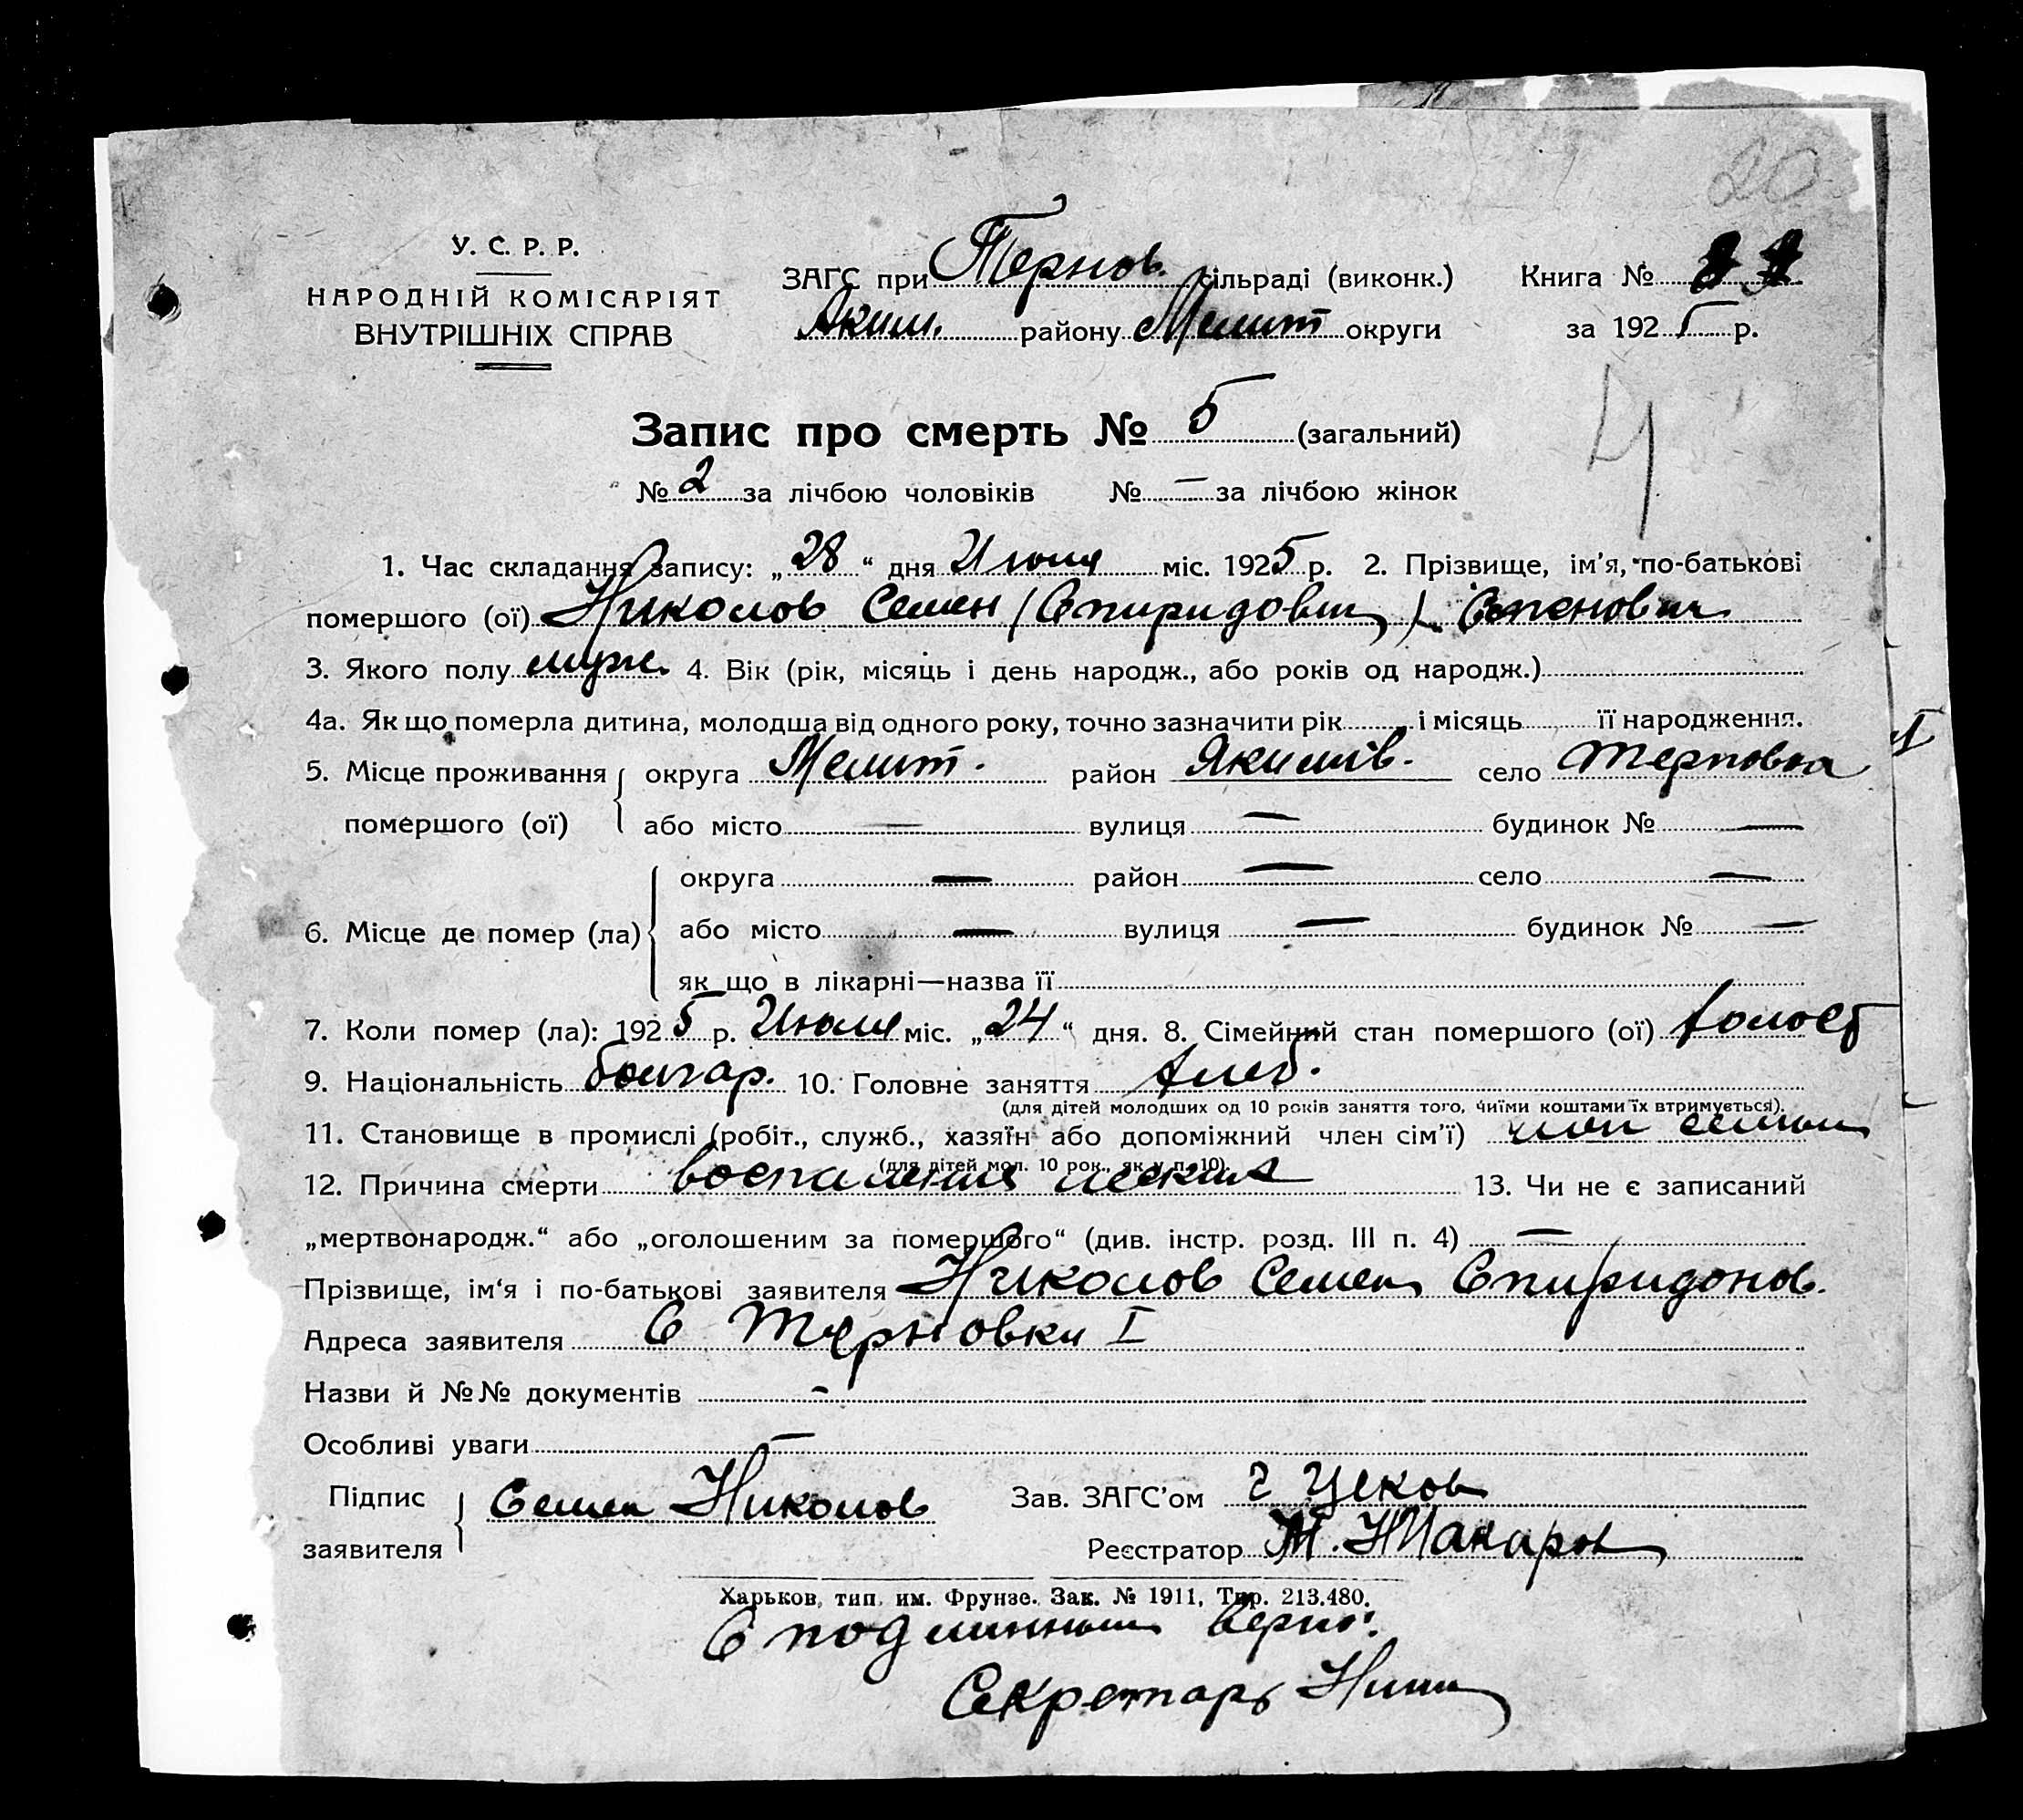 20
У. С. Р. Р.
НАРОДНІЙ КОМІСАРІЯТ
ВНУТРІШНІХ СПРАВ
ЗАГС при Тернов. сільраді (виконк.)
Аким. району Мелит округи
Книга №
за 1925 р.
Запис про смерть № 5 (загальний)
4
№ 2 за лічбою чоловіків № — за лічбою жінок
1. Час складання запису: „28“ дня Июля міс. 1925 р. 2. Прізвище, ім'я, по-батькові
помершого (ої) Николов Семен (Спиридович)
3. Якого полу муж. 4. Вік (рік, місяць і день народж., або років од народж.)
4а. Як що померла дитина, молодша від одного року, точно зазначити рік і місяць її народження.
5. Місце проживання округа Мелит. район Якимів. село Терновка
I
помершого (ої) або місто — вулиця — будинок № —
округа — район — село —
6. Місце де помер (ла) або місто — вулиця — будинок № —
як що в лікарні—назва її
7. Коли помер (ла): 1925 р. Июля міс. „24“ дня. 8. Сімейний стан помершого (ої) холост
9. Національність болгар. 10. Головне заняття хлеб.
(для дітей молодших од 10 років заняття того, чиїми коштами їх втримується).
11. Становище в промислі (робіт., служб., хазяїн або допоміжний член сім'ї) член семьи
(для дітей мол. 10 рок., як у п. 10).
12. Причина смерти воспаления легких 13. Чи не є записаний
„мертвонародж.“ або „оголошеним за помершого“ (див. інстр. розд. III п. 4) —
Прізвище, ім'я і по-батькові заявителя Николов Семен Спиридонов.
Адреса заявителя С Терновки I
Назви й №№ документів -
Особливі уваги —
Підпис заявителя Семен Николов
Зав. ЗАГС'ом Г Цеков
Реєстратор
Харьков, тип. им. Фрунзе. Зак. № 1911, Тир. 213.480.
С подлинным верно:
Секретарь